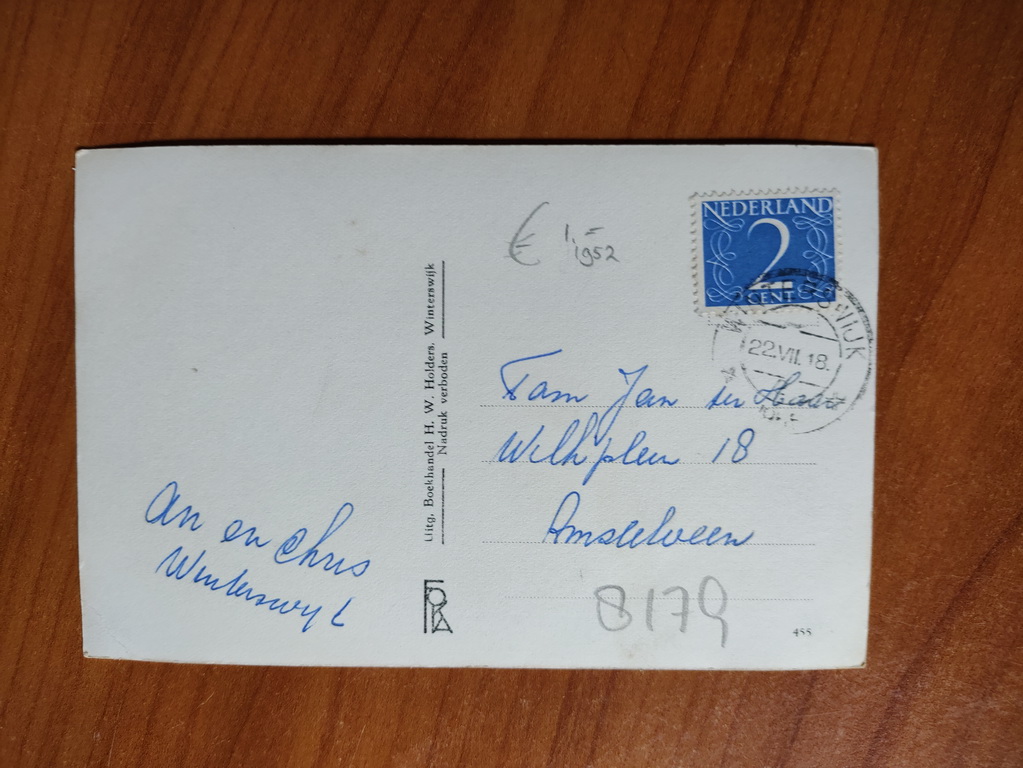 € 1,=
1952
NEDERLAND
2
CENT
WINTERSWIJK
22.VII.18.
Fam Jan ter Haar
Wilhplein 18
Amstelveen
Uitg. Boekhandel H. W. Holders, Winterswijk
Nadruk verboden
An en Chris
Winterswyk
FOKA
8179
455